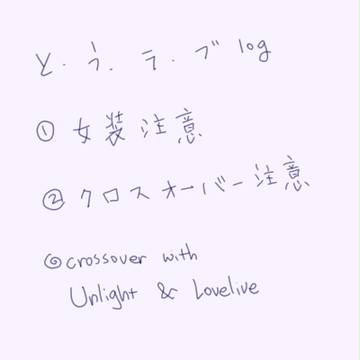 と.う.ラ.ブ log
① 女装注意
② クロスオーバー注意
◎crossover with
Unlight & Lovelive